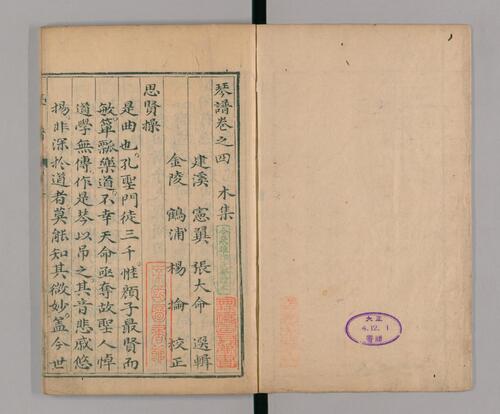 琴譜卷之四 木集
建溪 憲翼 張大命 選輯
金陵 鶴浦 楊掄 校正
思賢操
是曲也孔聖門徒三千惟顏子最賢而
敏簞瓢樂道不幸天命亟奪故聖人悼
道學無傳作是琴以吊之其音悲慼悠
揚非深於道者莫能知其微妙蓋今世
大正
4.12.1
購